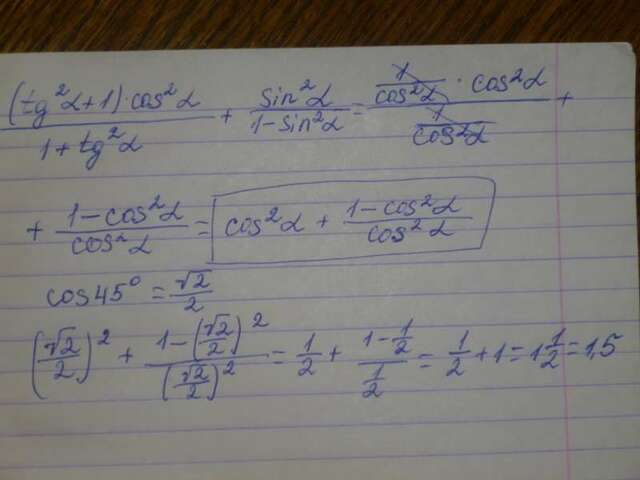 (tg²α+1)·cos²α / 1+tg²α + sin²α / 1-sin²α = 1/cos²α · cos²α / 1/cos²α +
+ 1-cos²α / cos²α = cos²α + 1-cos²α / cos²α
cos45° = √2/2
(√2/2)² + 1-(√2/2)² / (√2/2)² = 1/2 + 1-1/2 / 1/2 = 1/2 + 1 = 1 1/2 = 1,5